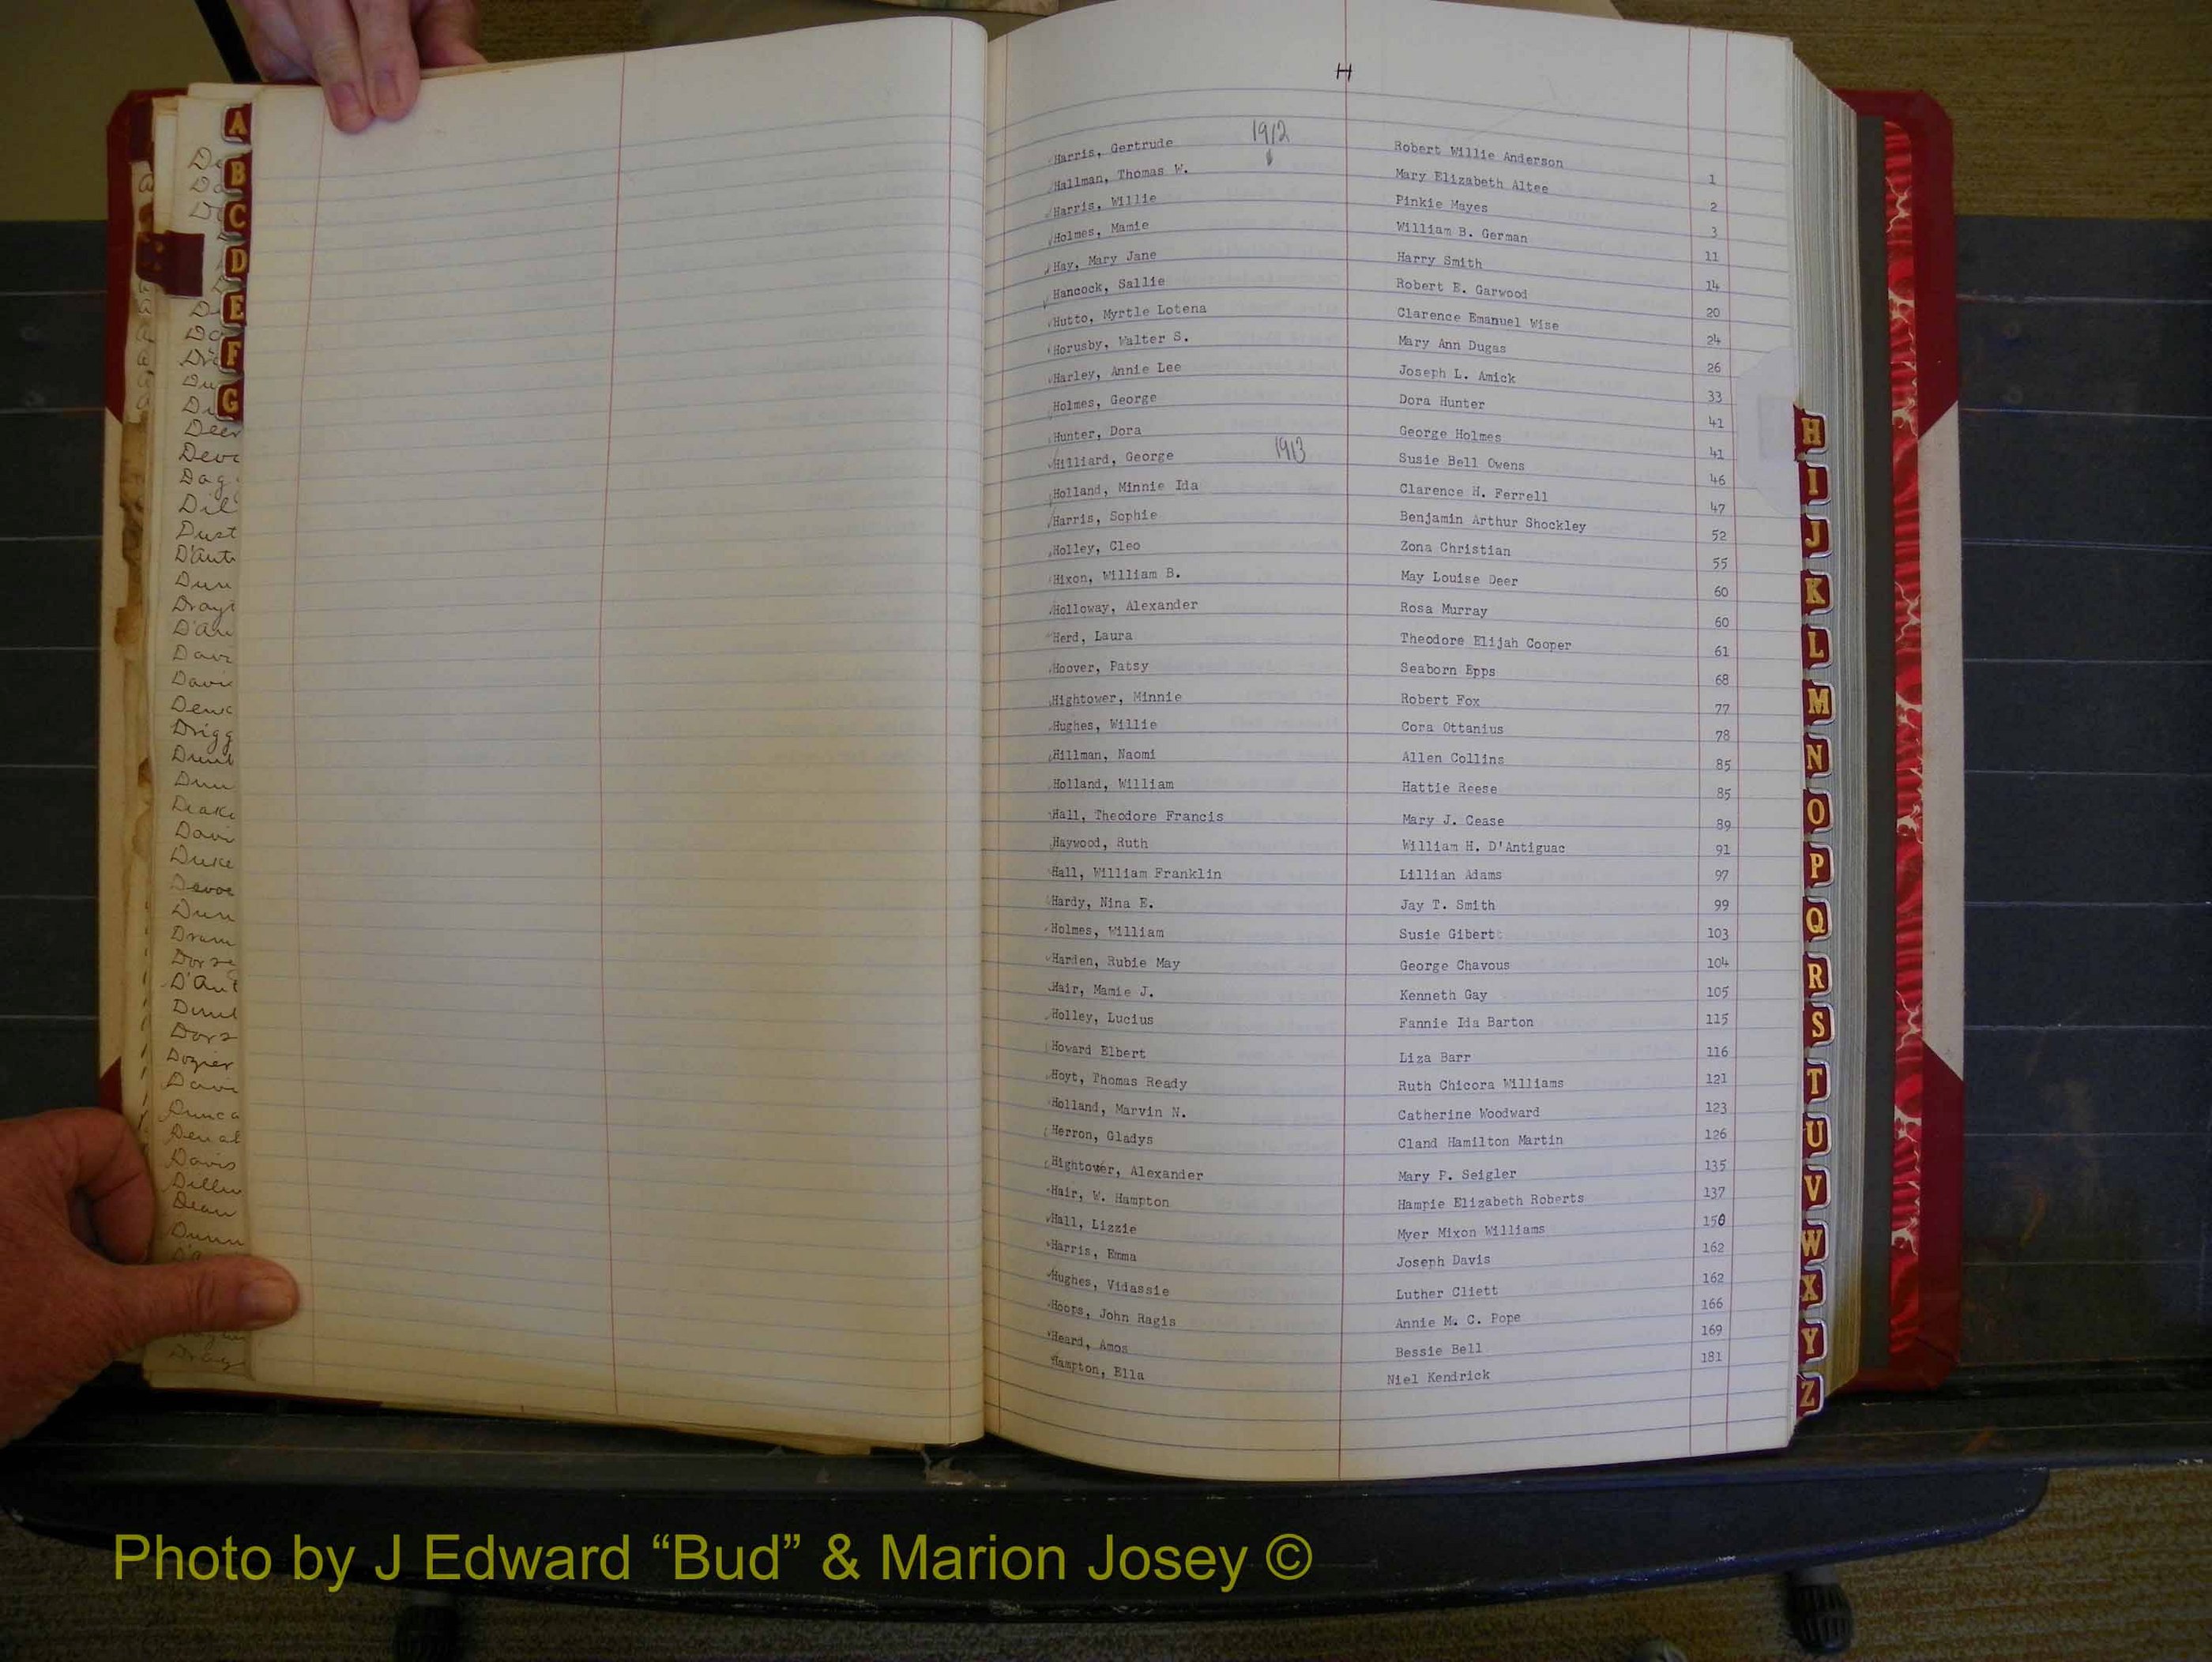 H
1912
Harris, Gertrude Robert Willie Anderson 1
Hallman, Thomas W. Mary Elizabeth Altee 2
Harris, Willie Pinkie Mayes 3
Holmes, Mamie William B. German 11
Hay, Mary Jane Harry Smith 14
Hancock, Sallie Robert E. Garwood 20
Hutto, Myrtle Lotena Clarence Emanuel Wise 24
Horusby, Walter S. Mary Ann Dugas 26
Harley, Annie Lee Joseph L. Amick 33
Holmes, George Dora Hunter 41
Hunter, Dora George Holmes 41
Hilliard, George 1913 Susie Bell Owens 46
Holland, Minnie Ida Clarence H. Ferrell 47
Harris, Sophie Benjamin Arthur Shockley 52
Holley, Cleo Zona Christian 55
Hixon, William B. May Louise Deer 60
Holloway, Alexander Rosa Murray 60
Herd, Laura Theodore Elijah Cooper 61
Hoover, Patsy Seaborn Epps 68
Hightower, Minnie Robert Fox 77
Hughes, Willie Cora Ottanius 78
Hillman, Naomi Allen Collins 85
Holland, William Hattie Reese 85
Hall, Theodore Francis Mary J. Cease 89
Haywood, Ruth William H. D'Antiguac 91
Hall, William Franklin Lillian Adams 97
Hardy, Nina E. Jay T. Smith 99
Holmes, William Susie Gibert 103
Harden, Rubie May George Chavous 104
Hair, Mamie J. Kenneth Gay 105
Holley, Lucius Fannie Ida Barton 115
Howard Elbert Liza Barr 116
Hoyt, Thomas Ready Ruth Chicora Williams 121
Holland, Marvin N. Catherine Woodward 123
Herron, Gladys Cland Hamilton Martin 126
Hightower, Alexander Mary P. Seigler 135
Hair, W. Hampton Hampie Elizabeth Roberts 137
Hall, Lizzie Myer Mixon Williams 150
Harris, Emma Joseph Davis 162
Hughes, Vidassie Luther Cliett 162
Hoops, John Ragis Annie M. C. Pope 166
Heard, Amos Bessie Bell 169
Hampton, Ella Niel Kendrick 181
A
B
C
D
E
F
G
H
I
J
K
L
M
N
O
P
Q
R
S
T
U
V
W
X
Y
Z
Photo by J Edward “Bud” & Marion Josey ©